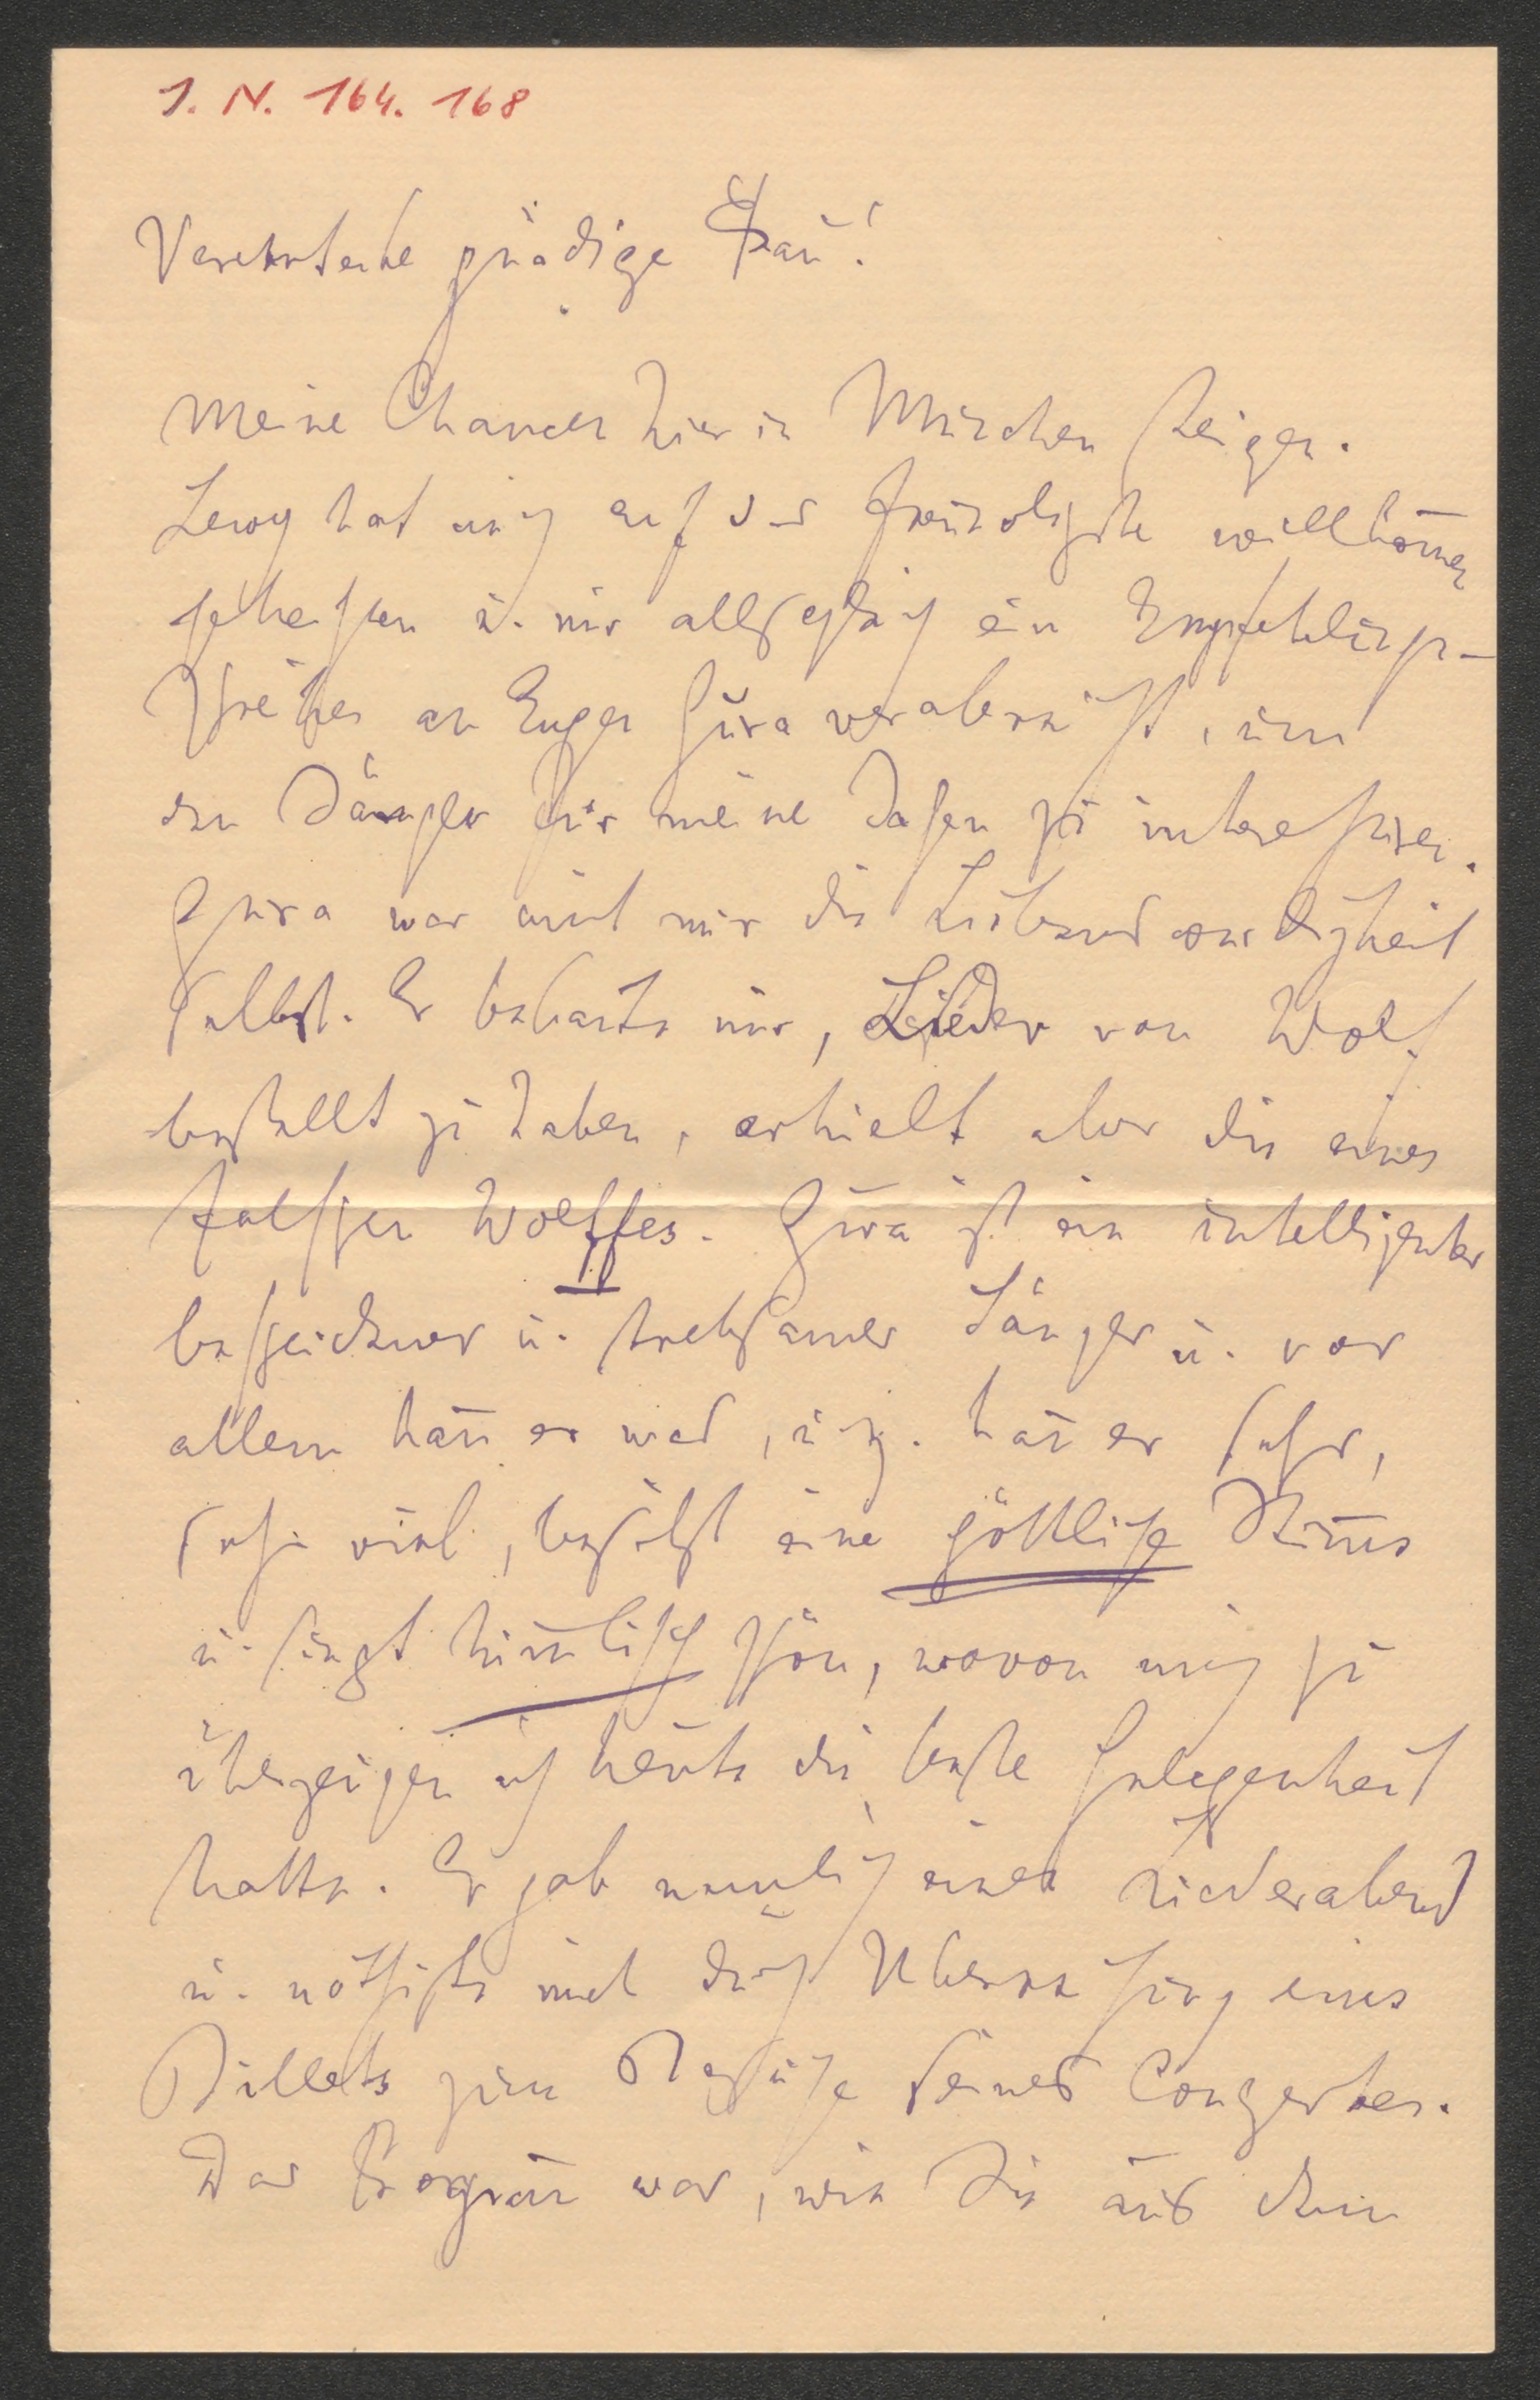 I. N. 164. 168
Verehrteste gnädige Frau!
Meine Chancen hier in München steigen.
Levy hat mich auf das freundlichste willkom̄en
geheißen u. mir allsogleich ein Empfehlungs-
schreiben an Eugen Gura verabreicht, um
den Sänger für meine Sachen zu interessiren.
Gura war mit mir die Liebenswürdigkeit
selbst. Er bekannte mir, Lieder von Wolf
bestellt zu haben, erhielt aber die eines
falschen Wolffes. Gura ist ein intelligenter
bescheidener u. strebsamer Sänger u. vor
allem kan̄ er was, u. z. kan̄ er sehr,
sehr viel, besitzt eine göttliche Stim̄e
u. singt him̄lisch schön, wovon mich zu
überzeugen ich heute die beste Gelegenheit
hatte. Er gab nämlich einen Liederabend
u. nöthigte mich durch Überreichung eines
Billets zum Besuche seines Conzertes.
Das Program̄ war, wie Sie aus dem